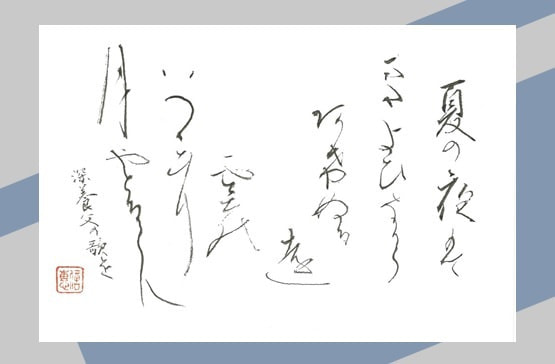 夏の夜は
またよひなから
あけぬる
遠
雲の
いつこに
月やとるらむ
深養父の歌を